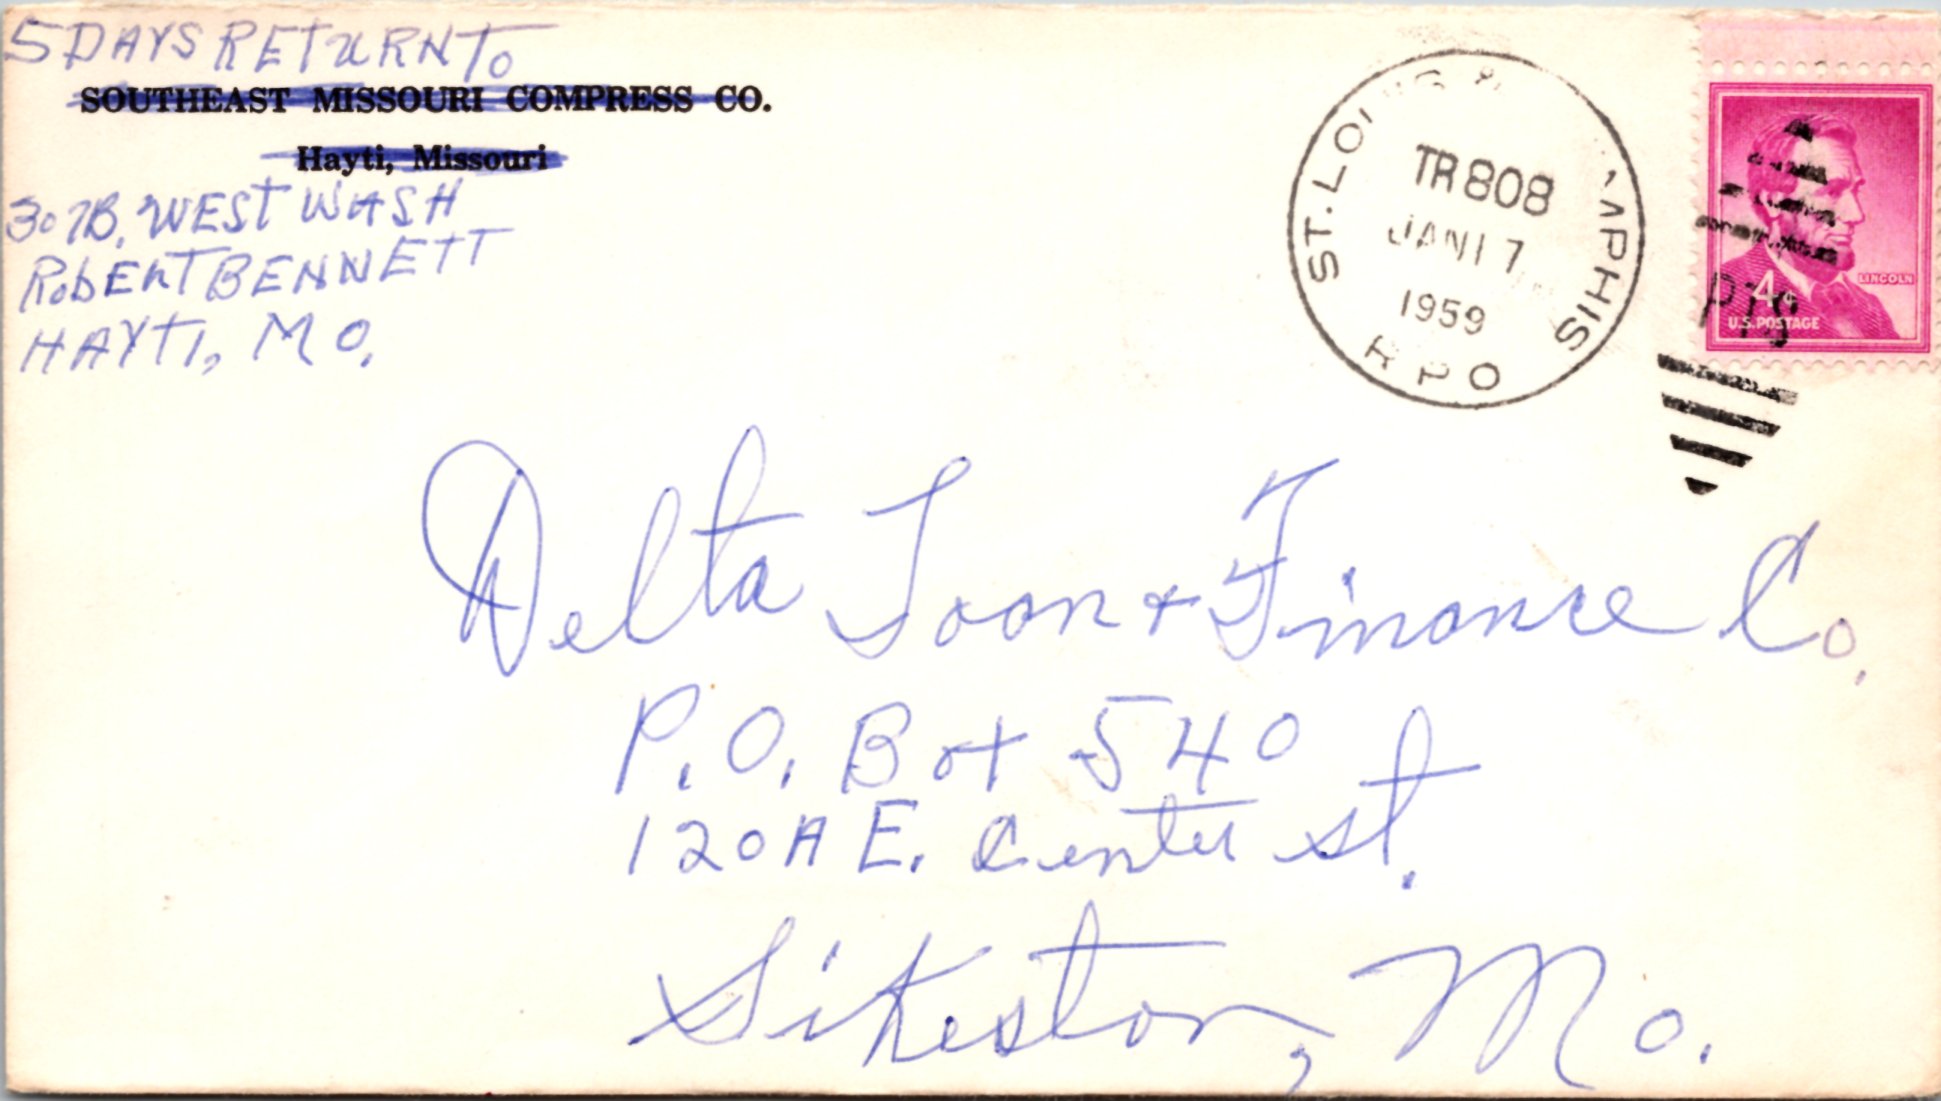 5 DAYS RETURN TO
SOUTHEAST MISSOURI COMPRESS CO.
Hayti, Missouri
307B. WEST WASH
RobERT BENNETT
HAYTI, MO.
ST. LOUIS & MEMPHIS
TR 808
JAN 17
1959
RPO
LINCOLN
4¢
U.S. POSTAGE
PTS
Delta Loan & Finance Co.
P.O. Box 540
120A E. Center St.
Sikeston, Mo.